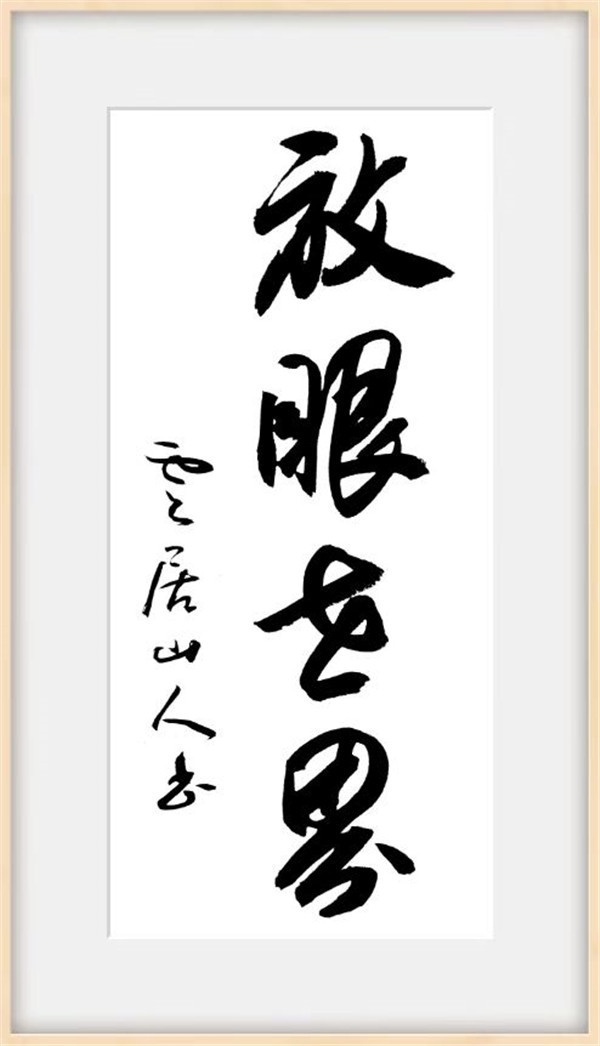 放眼世界
雲居山人书